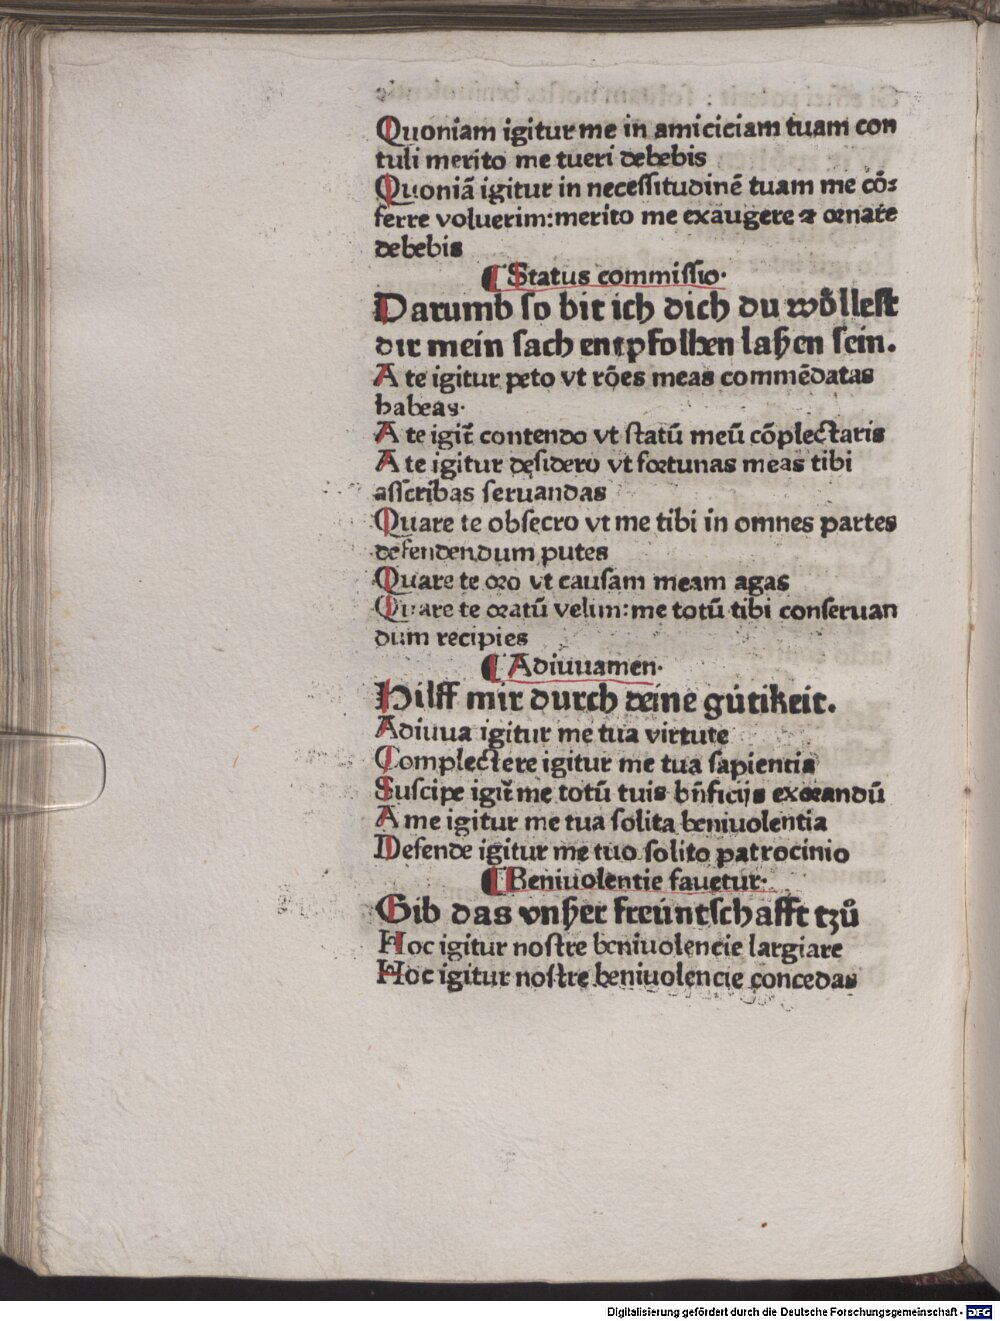 Quoniam igitur me in amiciciam tuam con
tuli merito me tueri debebis
Quoniã igitur in necessitudinẽ tuam me cõ⸗
ferre voluerim:merito me exaugere ⁊ ornare
debebis
¶ Status commissio·
Darumb so bit ich dich du woͤllest
dir mein sach entpfolhen laßen sein.
A te igitur peto vt rões meas commẽdatas
habeas·
A te igit̃ contendo vt statũ meũ cõplectaris
A te igitur desidero vt fortunas meas tibi
asscribas seruandas
Quare te obsecro vt me tibi in omnes partes
defendendum putes
Quare te oro vt causam meam agas
Quare te oratũ velim:me totũ tibi conseruan
dum recipies
¶ Adiuuamen·
Hilff mir durch deine gütikeit.
Adiuua igitur me tua virtute
Complectere igitur me tua sapientis
Suscipe igit̃ me totũ tuis bñficijs exorandũ
A me igitur me tua solita beniuolentia
Defende igitur me tuo solito patrocinio
¶ Beniuolentie fauetur·
Gib das vnßer freüntschafft tzů
Hoc igitur nostre beniuolencie largiare
Hoc igitur nostre beniuolencie concedas
Digitalisierung gefördert durch die Deutsche Forschungsgemeinschaft - DFG